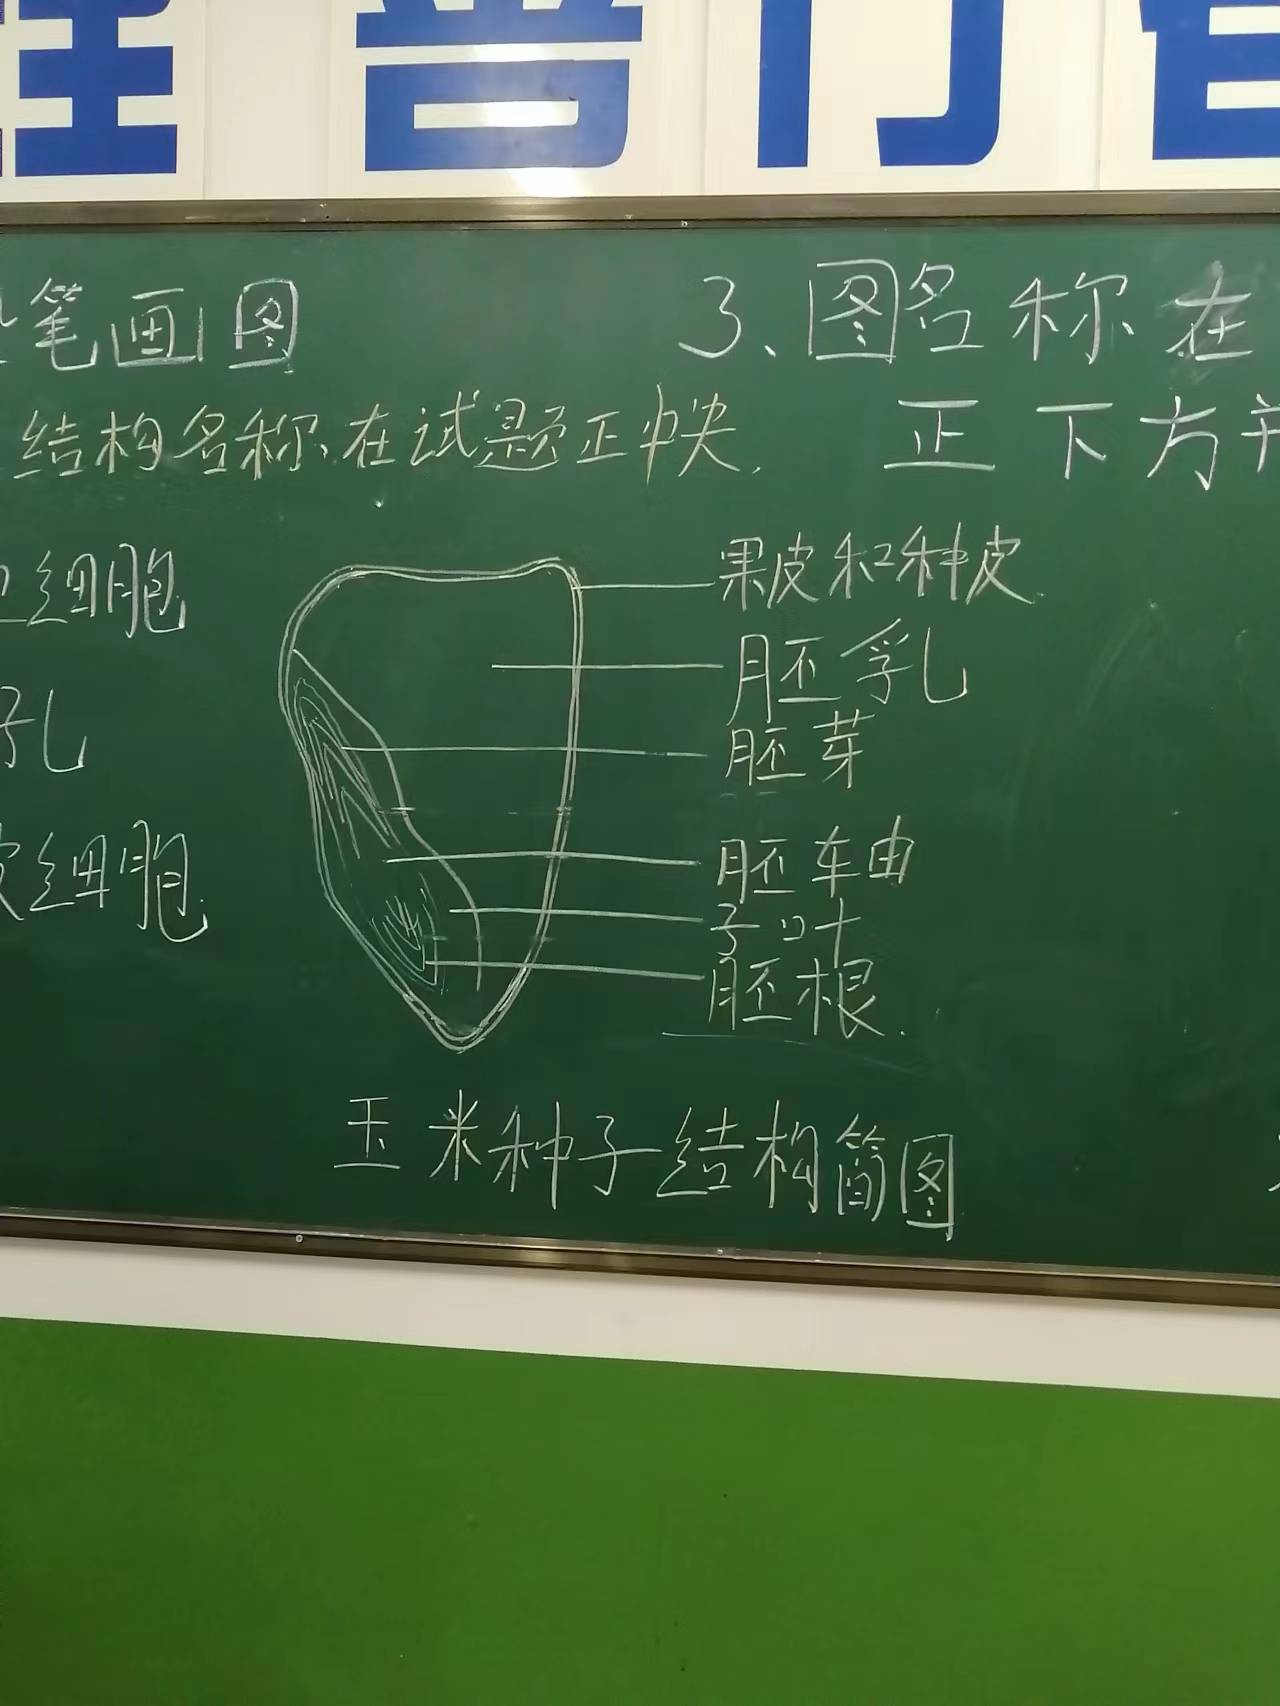 普
笔画图
结构名称在试题正中央.
3、图名称在
正下方
细胞
孔
细胞.
果皮和种皮
胚乳
胚芽
胚轴
子叶
胚根.
玉米种子结构简图